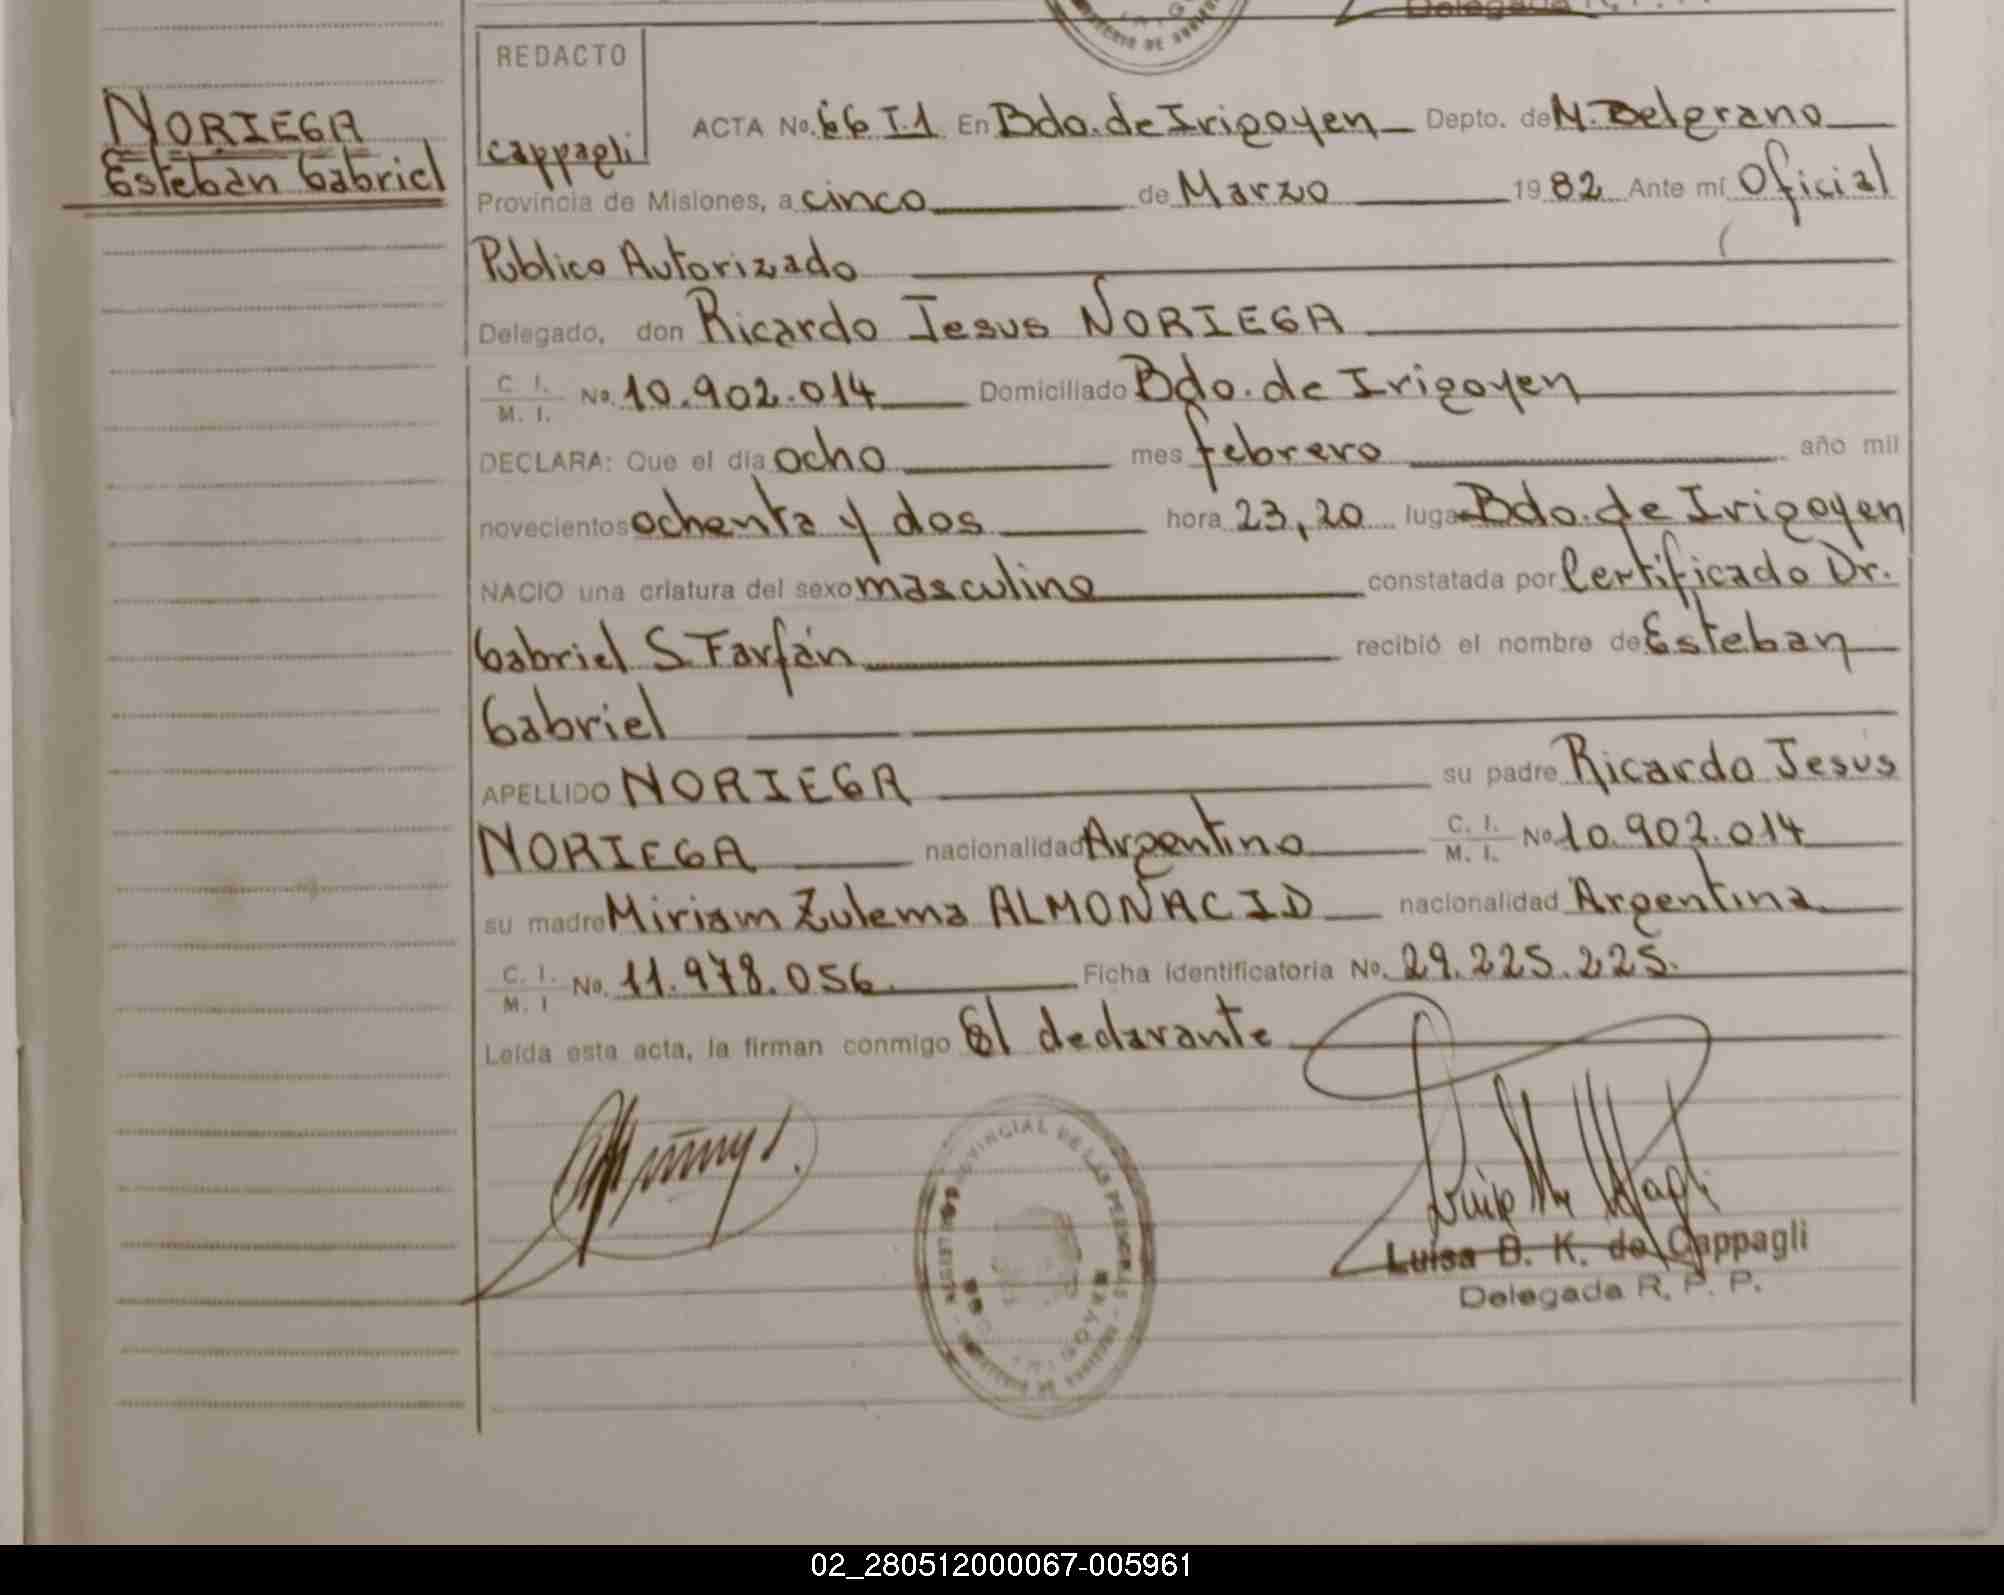 Delegada R. P. P.
REDACTO
NORIEGA
Esteban Gabriel
cappagli
ACTA No. 66 T.1 En Bdo. de Irigoyen Depto. de M. Belgrano
Provincia de Misiones, a cinco de Marzo 1982 Ante mí Oficial
Publico Autorizado
Delegado, don Ricardo Jesus NORIEGA
C. I. / M. I. No. 10.902.014 Domiciliado Bdo. de Irigoyen
DECLARA: Que el día ocho mes febrero año mil
novecientos ochenta y dos hora 23,20 lugar Bdo. de Irigoyen
NACIO una criatura del sexo masculino constatada por Certificado Dr.
Gabriel S. Farfán recibió el nombre de Esteban
Gabriel
APELLIDO NORIEGA su padre Ricardo Jesús
NORIEGA nacionalidad Argentino C. I. / M. I. No. 10.902.014
su madre Miriam Zulema ALMOÑACID nacionalidad Argentina
C. I. / M. I No. 11.978.056. Ficha Identificatoria No. 29.225.225.
Leída esta acta, la firman conmigo El declarante
PROVINCIAL DE LAS PERSONAS
IRIGOYEN
Luisa B. K. de Cappagli
Delegada R. P. P.
02_280512000067-005961